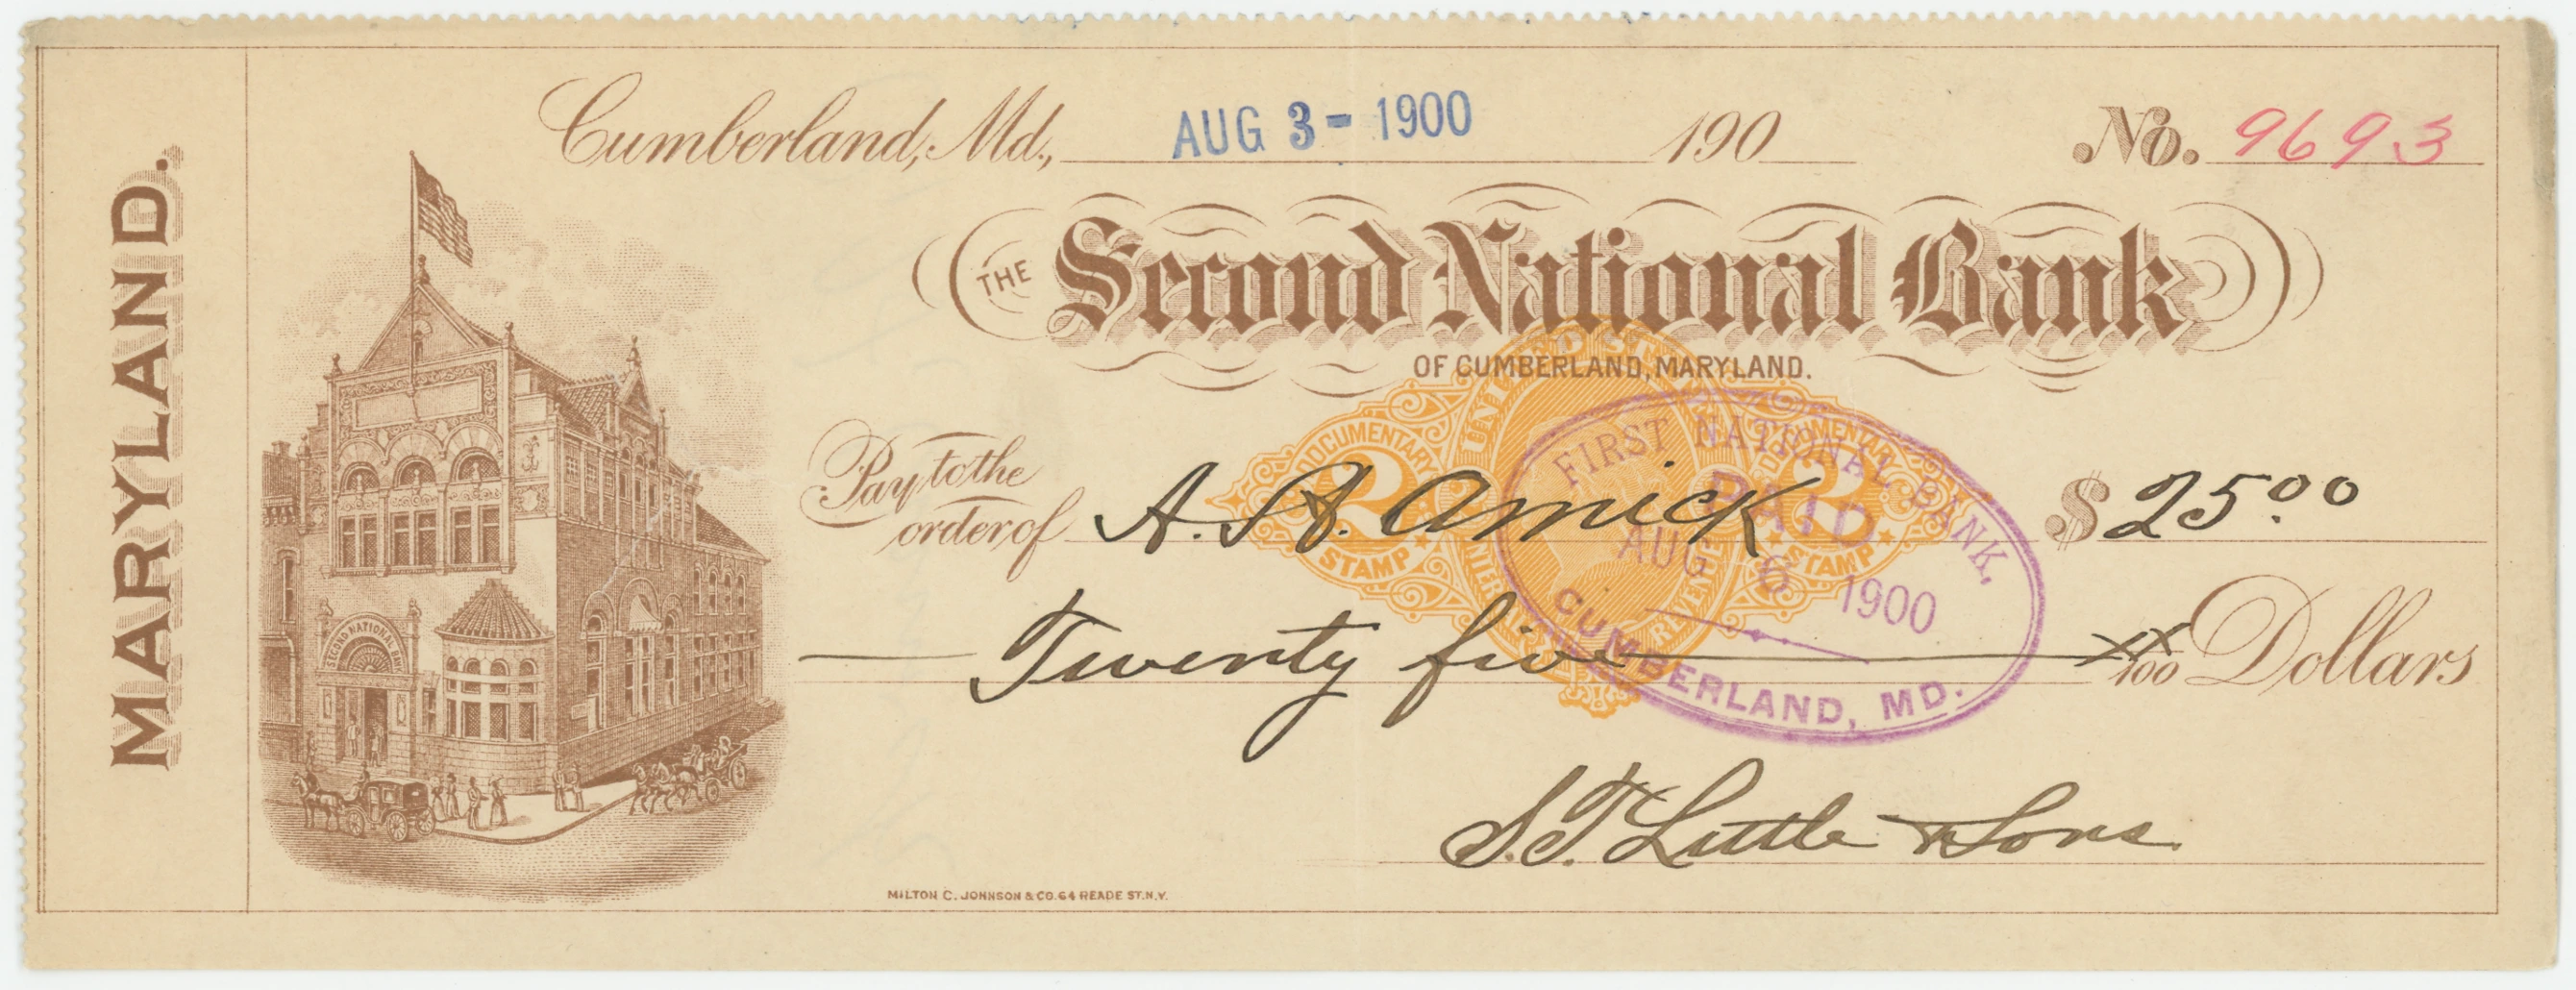 MARYLAND.
Cumberland, Md., AUG 3 - 1900 190 No. 9693
THE Second National Bank
OF CUMBERLAND, MARYLAND.
Pay to the
order of A. A. Amick $ 25.00
Twenty five xx/100 Dollars
S. T. Little & Sons
SECOND NATIONAL BANK
MILTON C. JOHNSON & CO. 64 READE ST. N.Y.
UNITED STATES
DOCUMENTARY DOCUMENTARY
2 2
STAMP STAMP
INTERNAL REVENUE
FIRST NATIONAL BANK,
PAID
AUG 6 1900
CUMBERLAND, MD.